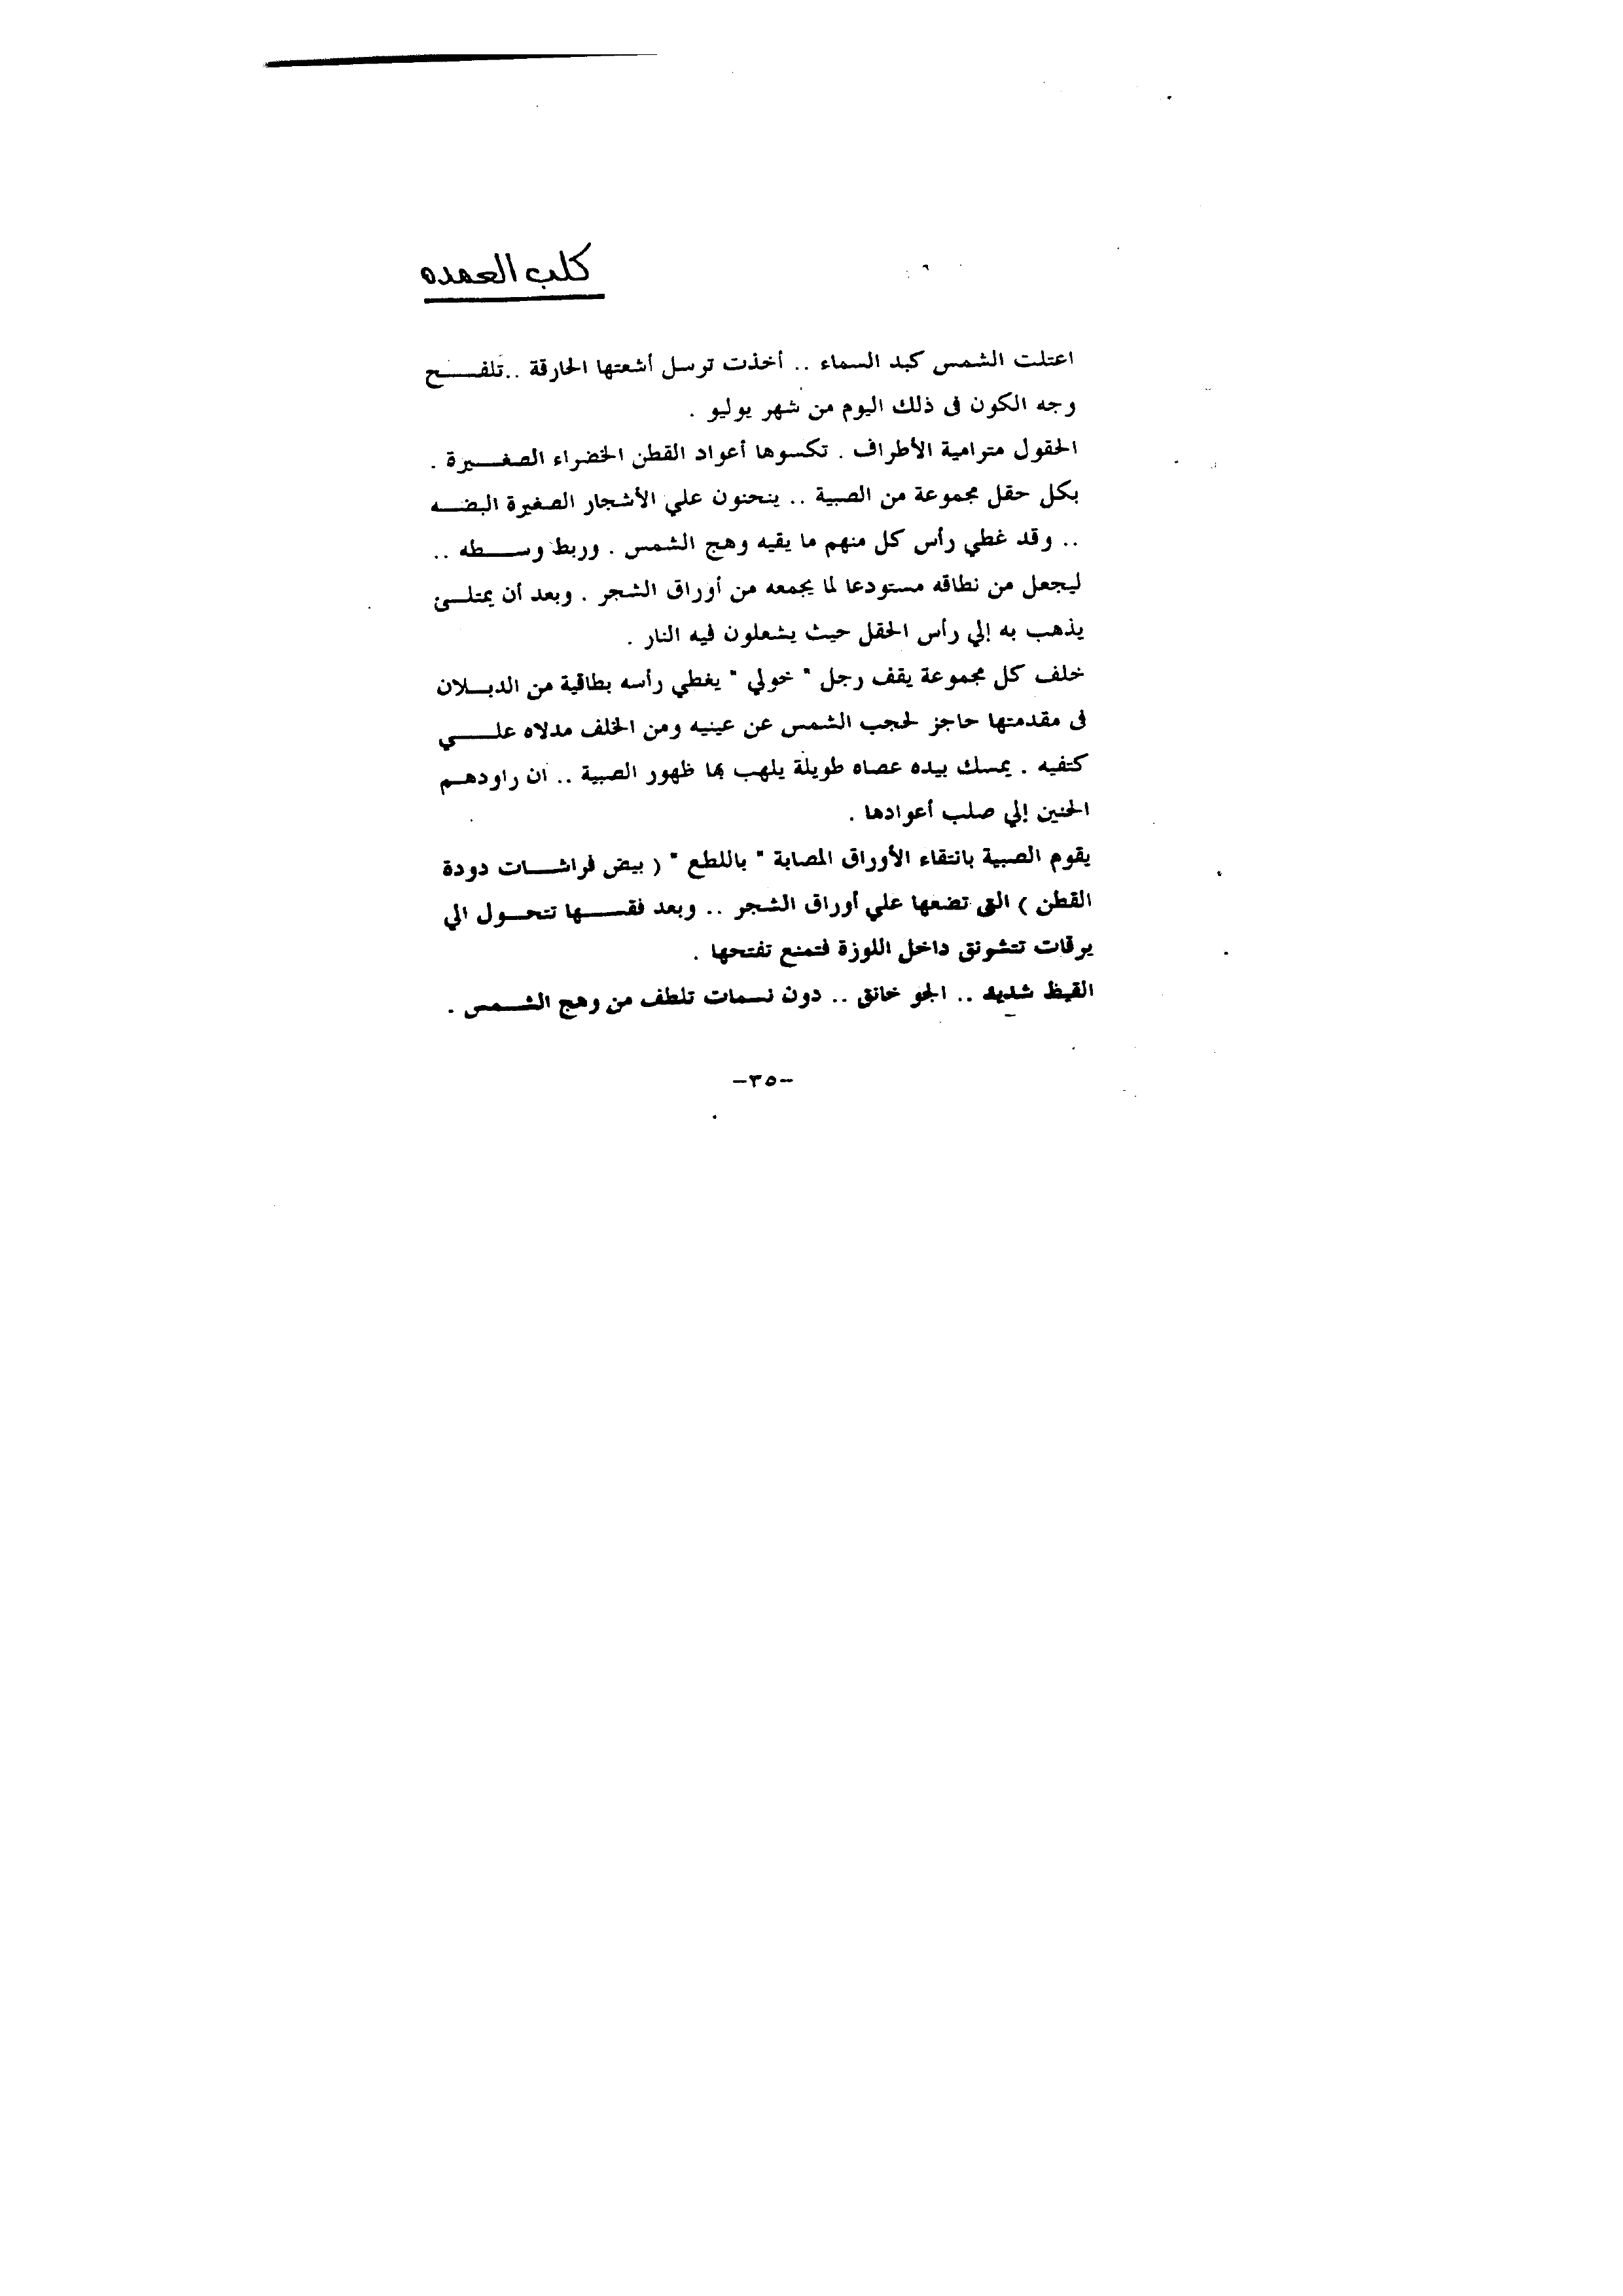 كلب العمده
اعتلت الشمس كبد السماء .. أخذت ترسل أشعتها الحارقة ..تلفـــح
وجه الكون فى ذلك اليوم من شهر يوليو .
الحقول مترامية الأطراف . تكسوها أعواد القطن الخضراء الصغـــيرة .
بكل حقل مجموعة من الصبية .. ينحنون علي الأشجار الصغيرة البضـــه
.. وقد غطي رأس كل منهم ما يقيه وهج الشمس . وربط وســـطه ..
ليجعل من نطاقه مستودعا لما يجمعه من أوراق الشجر . وبعد أن يمتلـــئ
يذهب به إلي رأس الحقل حيث يشعلون فيه النار .
خلف كل مجموعة يقف رجل " خولي " يغطي رأسه بطاقية من الدبـــلان
فى مقدمتها حاجز لحجب الشمس عن عينيه ومن الخلف مدلاه علـــي
كتفيه . يمسك بيده عصاه طويلة يلهب بها ظهور الصبية .. ان راودهـــم
الحنين إلي صلب أعوادها .
يقوم الصبية بانتقاء الأوراق المصابة " باللطع " ( بيض فراشـــات دودة
القطن ) التى تضعها علي أوراق الشجر .. وبعد فقـــسها تتحـــول الي
يرقات تتشونق داخل اللوزة فتمنع تفتحها .
القيظ شديد .. الجو خانق .. دون نسمات تلطف من وهج الشـــمس .
-٣٥-